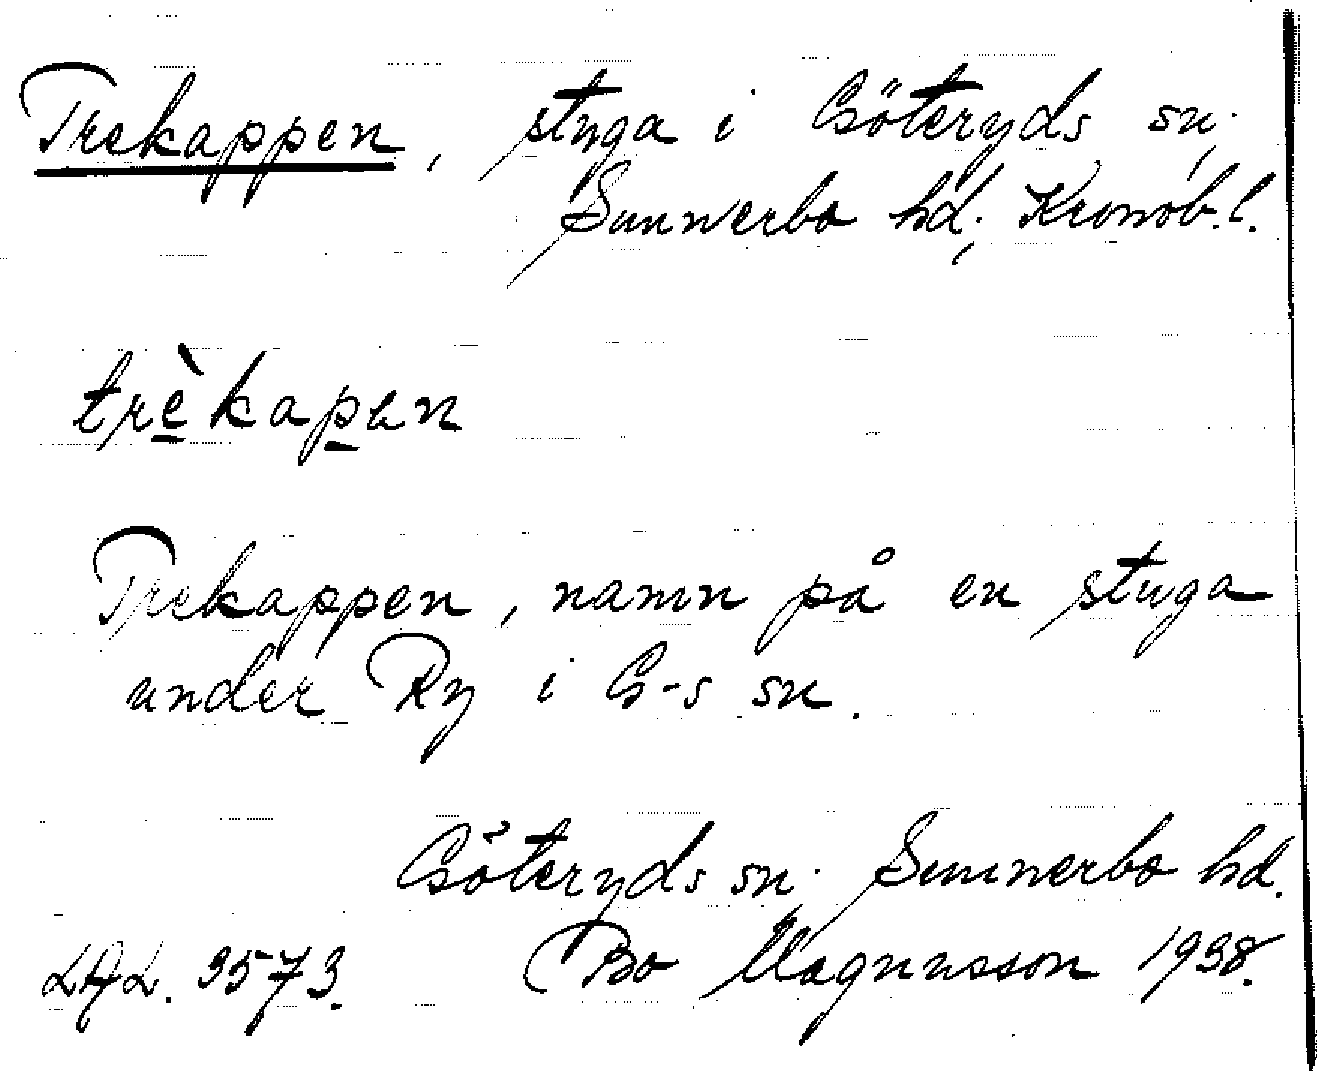 Trekappen, stuga i Göteryds sn,
Sunnerbo hd, Kronob. l.
trèkapen
Trekappen, namn på en stuga
under Ry i G-s sn.
Göteryds sn. Sunnerbo hd.
LAL. 3573. Bo Magnusson 1938.